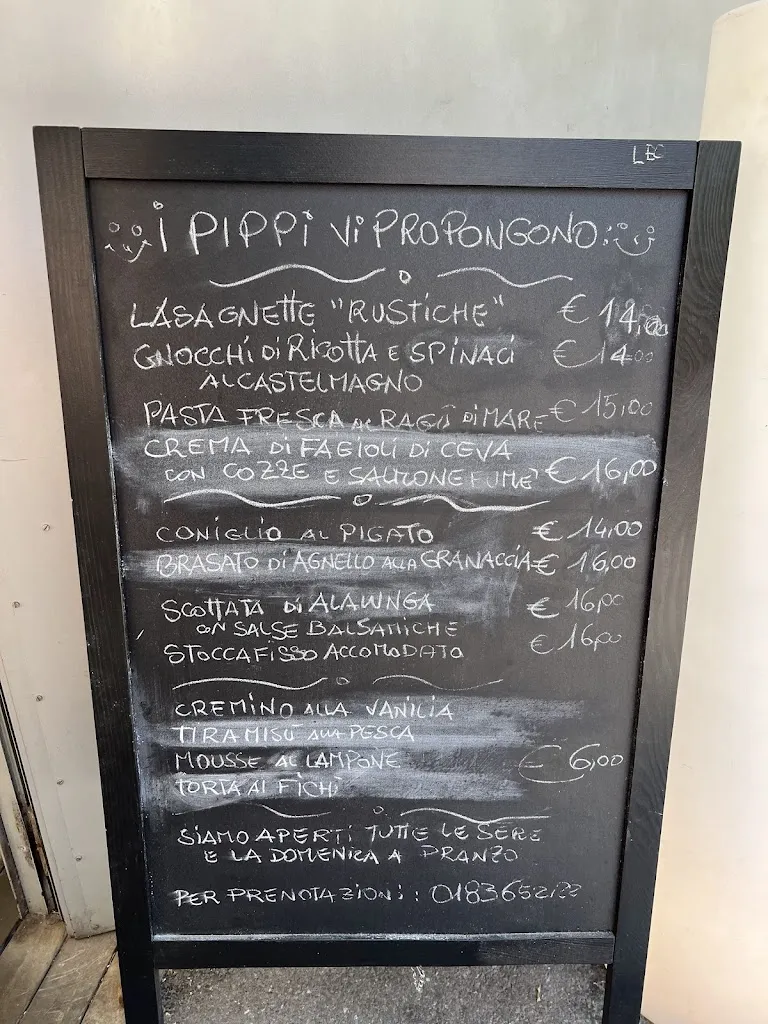 LEC
i PIPPi Vi PROPONGONO:
LASAGNETTE "RUSTICHE" € 14,00
GNOCCHi Di RiCOTTA E SPiNACi € 14,00
AL CASTELMAGNO
PASTA FRESCA AL RAGÙ Di MARE € 15,00
CREMA Di FAGiOLi Di CEVA
CON COZZE E SALMONE FUMÈ € 16,00
CONIGLIO AL PIGATO € 14,00
BRASATO Di AGNELLO ALLA GRANACCIA € 16,00
SCOTTATA Di ALALUNGA € 16,00
CON SALSE BALSAMICHE
STOCCAFISSO ACCOMODATO € 16,00
CREMINO ALLA VANILIA
TIRAMISÙ ALLA PESCA
MOUSSE AL LAMPONE € 6,00
TORTA AI FICHI
SiAMO APERTi TUTTE LE SERE
E LA DOMENICA A PRANZO
PER PRENOTAZIONi: 0183652122